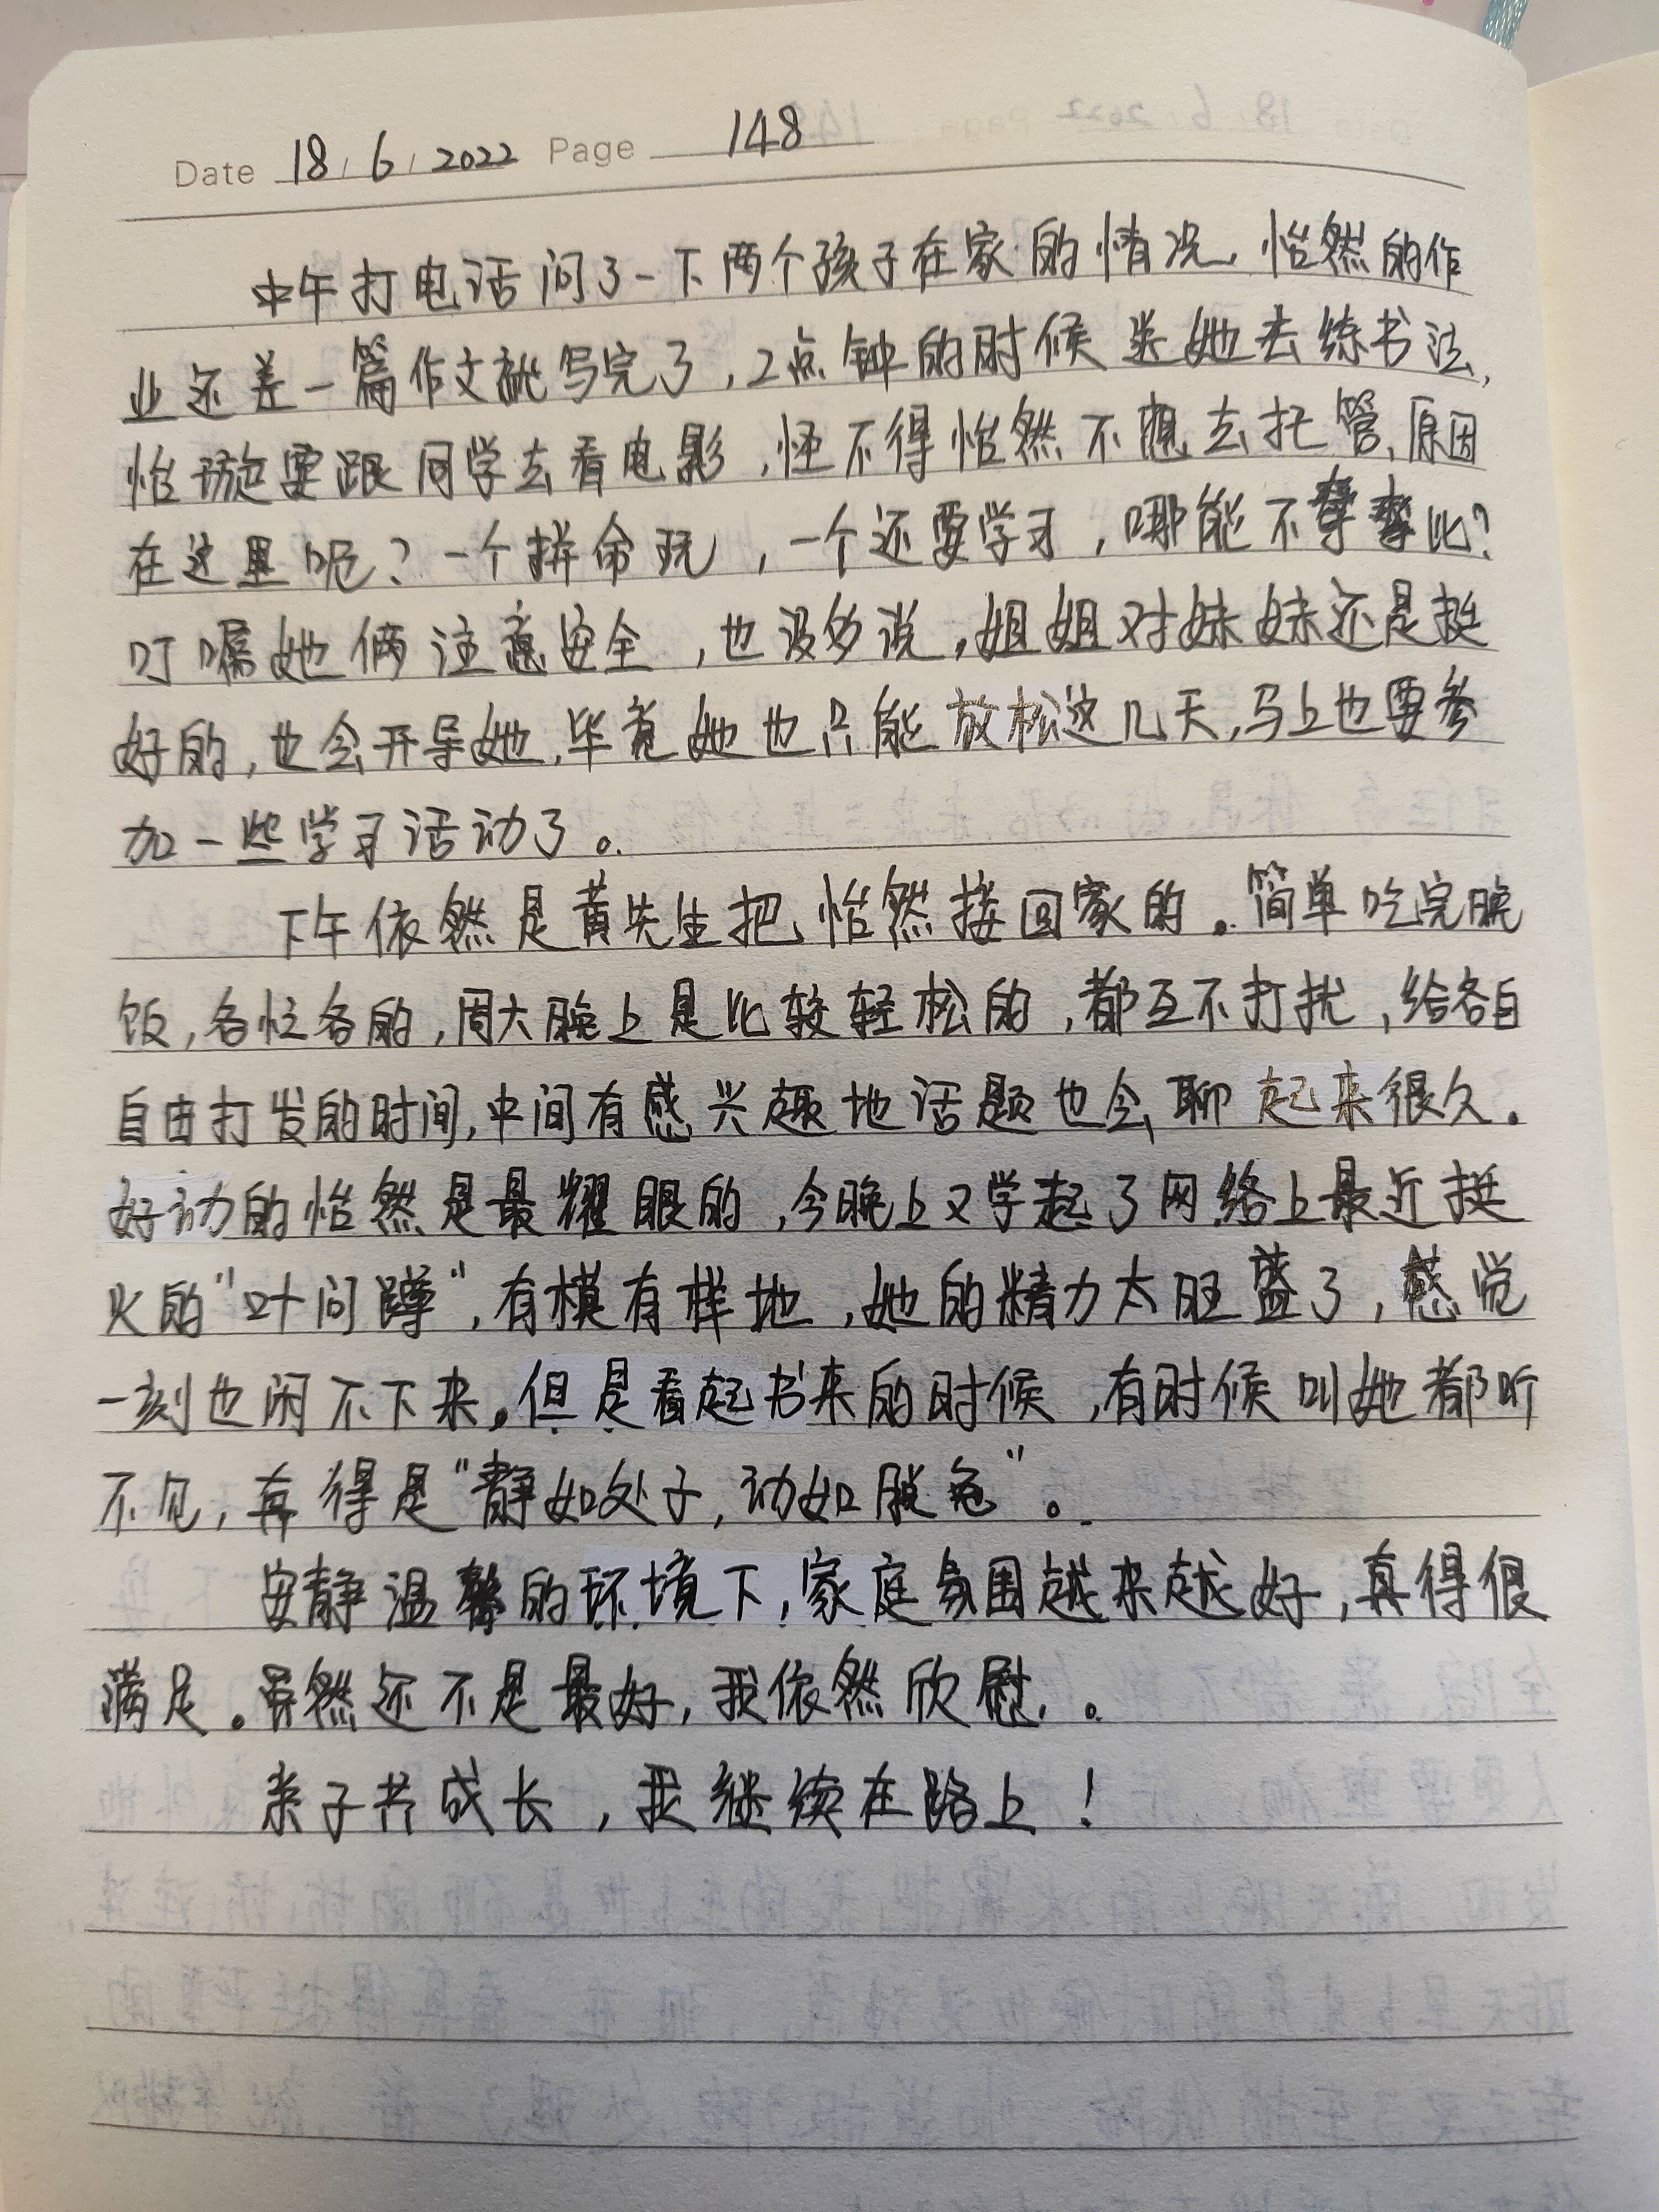 Date 18 / 6 / 2022 Page 148
中午打电话问了一下两个孩子在家的情况,怡然的作
业还差一篇作文就写完了,2点钟的时候送她去练书法,
怡璇要跟同学去看电影,怪不得怡然不想去托管,原因
在这里呢?一个拼命玩,一个还要学习,哪能不攀比?
叮嘱她俩注意安全,也没多说,姐姐对妹妹还是挺
好的,也会开导她,毕竟她也只能放松这几天,马上也要参
加一些学习活动了。
下午依然是黄先生把怡然接回家的。简单吃完晚
饭,各忙各的,周六晚上是比较轻松的,都互不打扰,给各自
自由打发的时间,中间有感兴趣地话题也会聊起来很久。
好动的怡然是最耀眼的,今晚上又学起了网络上最近挺
火的"叶问蹲",有模有样地,她的精力太旺盛了,感觉
一刻也闲不下来。但是看起书来的时候,有时候叫她都听
不见,真得是"静如处子,动如脱兔"。
安静温馨的环境下,家庭氛围越来越好,真得很
满足。虽然还不是最好,我依然欣慰。
亲子共成长,我继续在路上!